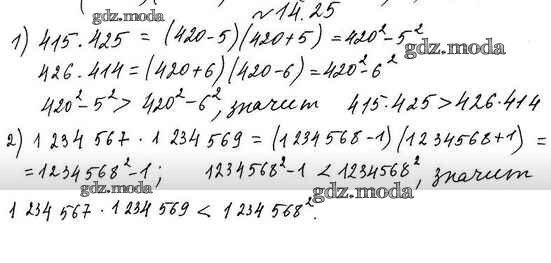 №14.25
1) 415·425 = (420-5)(420+5) = 420²-5²
gdz.moda
gdz.moda
426·414 = (420+6)(420-6) = 420²-6²
420²-5² > 420²-6², значит 415·425 > 426·414
gdz.moda
2) 1 234 567 · 1 234 569 = (1 234 568-1)(1 234 568+1) =
= 1234568²-1; 1234568²-1 < 1234568², значит
gdz.moda
gdz.moda
1 234 567 · 1 234 569 < 1 234 568².